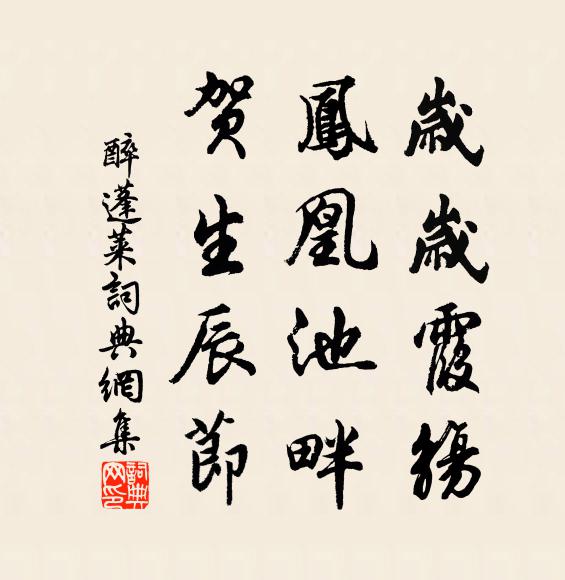 歲歲霞觴
鳳凰池畔
賀生辰節
醉蓬萊詞典網集
詞典网印